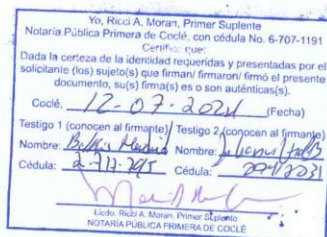 Yo, Ricci A. Moran, Primer Suplente
Notaría Pública Primera de Coclé, con cédula No. 6-707-1191
Certifico que:
Dada la certeza de la identidad requeridas y presentadas por el
solicitante (los) sujeto(s) que firman/ firmaron/ firmó el presente
documento, su(s) firma(s) es o son auténticas(s).
Coclé, 12-07-2024 (Fecha)
Testigo 1 (conocen al firmante) Testigo 2 (conocen al firmante)
Nombre: Nombre:
Cédula: Cédula:
Licdo. Ricci A. Moran, Primer Suplente
NOTARÍA PÚBLICA PRIMERA DE COCLÉ